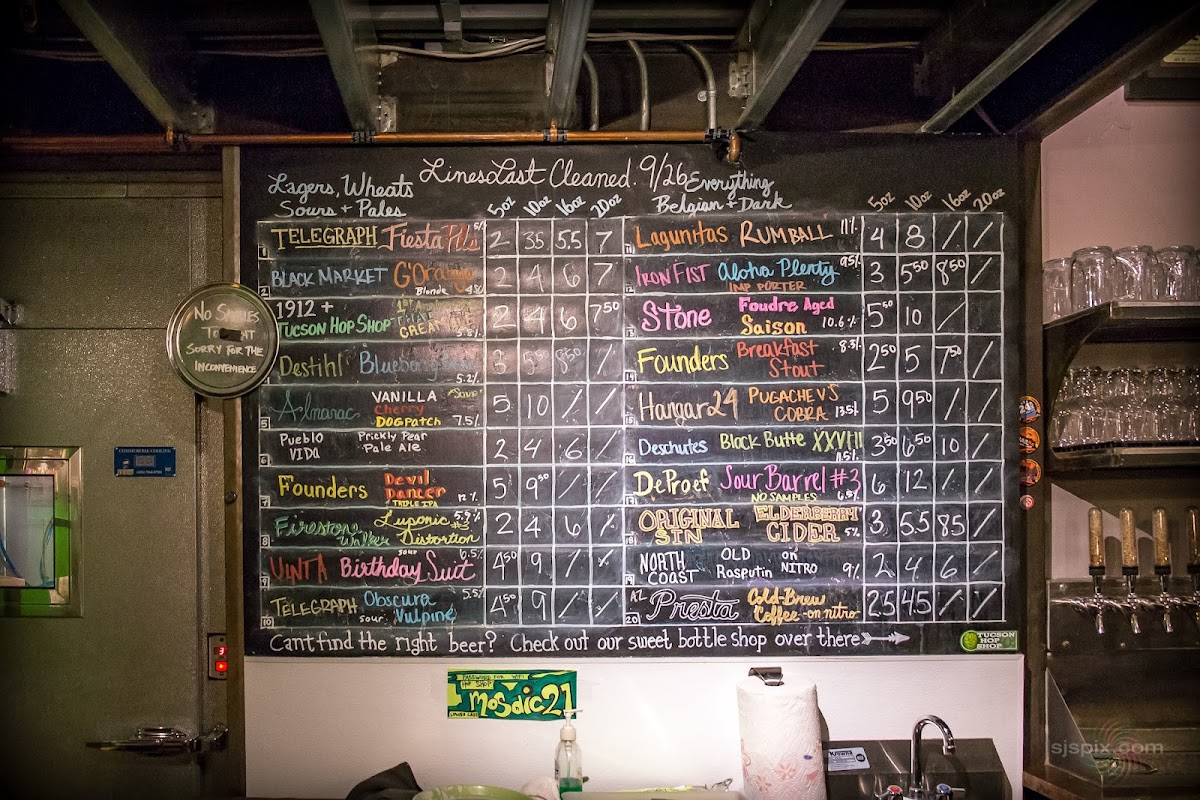 Lines Last Cleaned. 9/26
Lagers, Wheats
Sours + Pales
5oz 10oz 16oz 20oz
1 TELEGRAPH Fiesta Pils 5% 2 35 5.5 7
2 BLACK MARKET G'Orange Blonde 4% 2 4 6 7
1912 +
TUCSON HOP SHOP GREAT 5.8% 2 4 6 7 50
Destihl Blueberry 5.2% 3 5 50 8 50 /
5 Almanac VANILLA Cherry DOGPATCH "SOUR" 7.5% 5 10 / /
6 PUEBLO VIDA Prickly Pear Pale Ale 2 4 6 /
7 Founders Devil Dancer TRIPLE IPA 12% 5 9 50 / /
8 Firestone Walker Luponic #3 Distortion 5.9% 2 4 6 /
9 UINTA Birthday Suit sour 6.5% 4 50 9 / /
10 TELEGRAPH sour Obscura Vulpine 5.5% 4 50 9 / /
Everything
Belgian + Dark
5oz 10oz 16oz 20oz
11 Lagunitas RUMBALL 11% 4 8 / /
12 IRON FIST Aloha Plenty IMP PORTER 9.5% 3 5 50 8 50 /
13 Stone Foudre Aged Saison 10.6% 5 50 10 / /
14 Founders Breakfast Stout 8.3% 2 50 5 7 50 /
15 Hangar 24 PUGACHEVS COBRA 13.5% 5 9 50 / /
16 Deschutes Black Butte XXVIII 11.5% 3 50 6 50 10 /
17 DeProef Sour Barrel #3 NO SAMPLES 6.5% 6 12 / /
18 ORIGINAL SIN ELDERBERRY CIDER 5% 3 5.5 8.5 /
19 NORTH COAST OLD Rasputin on NITRO 9% 2 4 6 /
20 AZ Presta Cold-Brew Coffee -on nitro 2.5 4.5 / /
Cant find the right beer? Check out our sweet bottle shop over there
TUCSON
HOP
SHOP
No SAMPLES
TONIGHT
SORRY FOR THE
INCONVENIENCE
PASSWORD FOR WIFI
HOP SHOP
MOSAIC21
LOWER CASE
sjspix.com